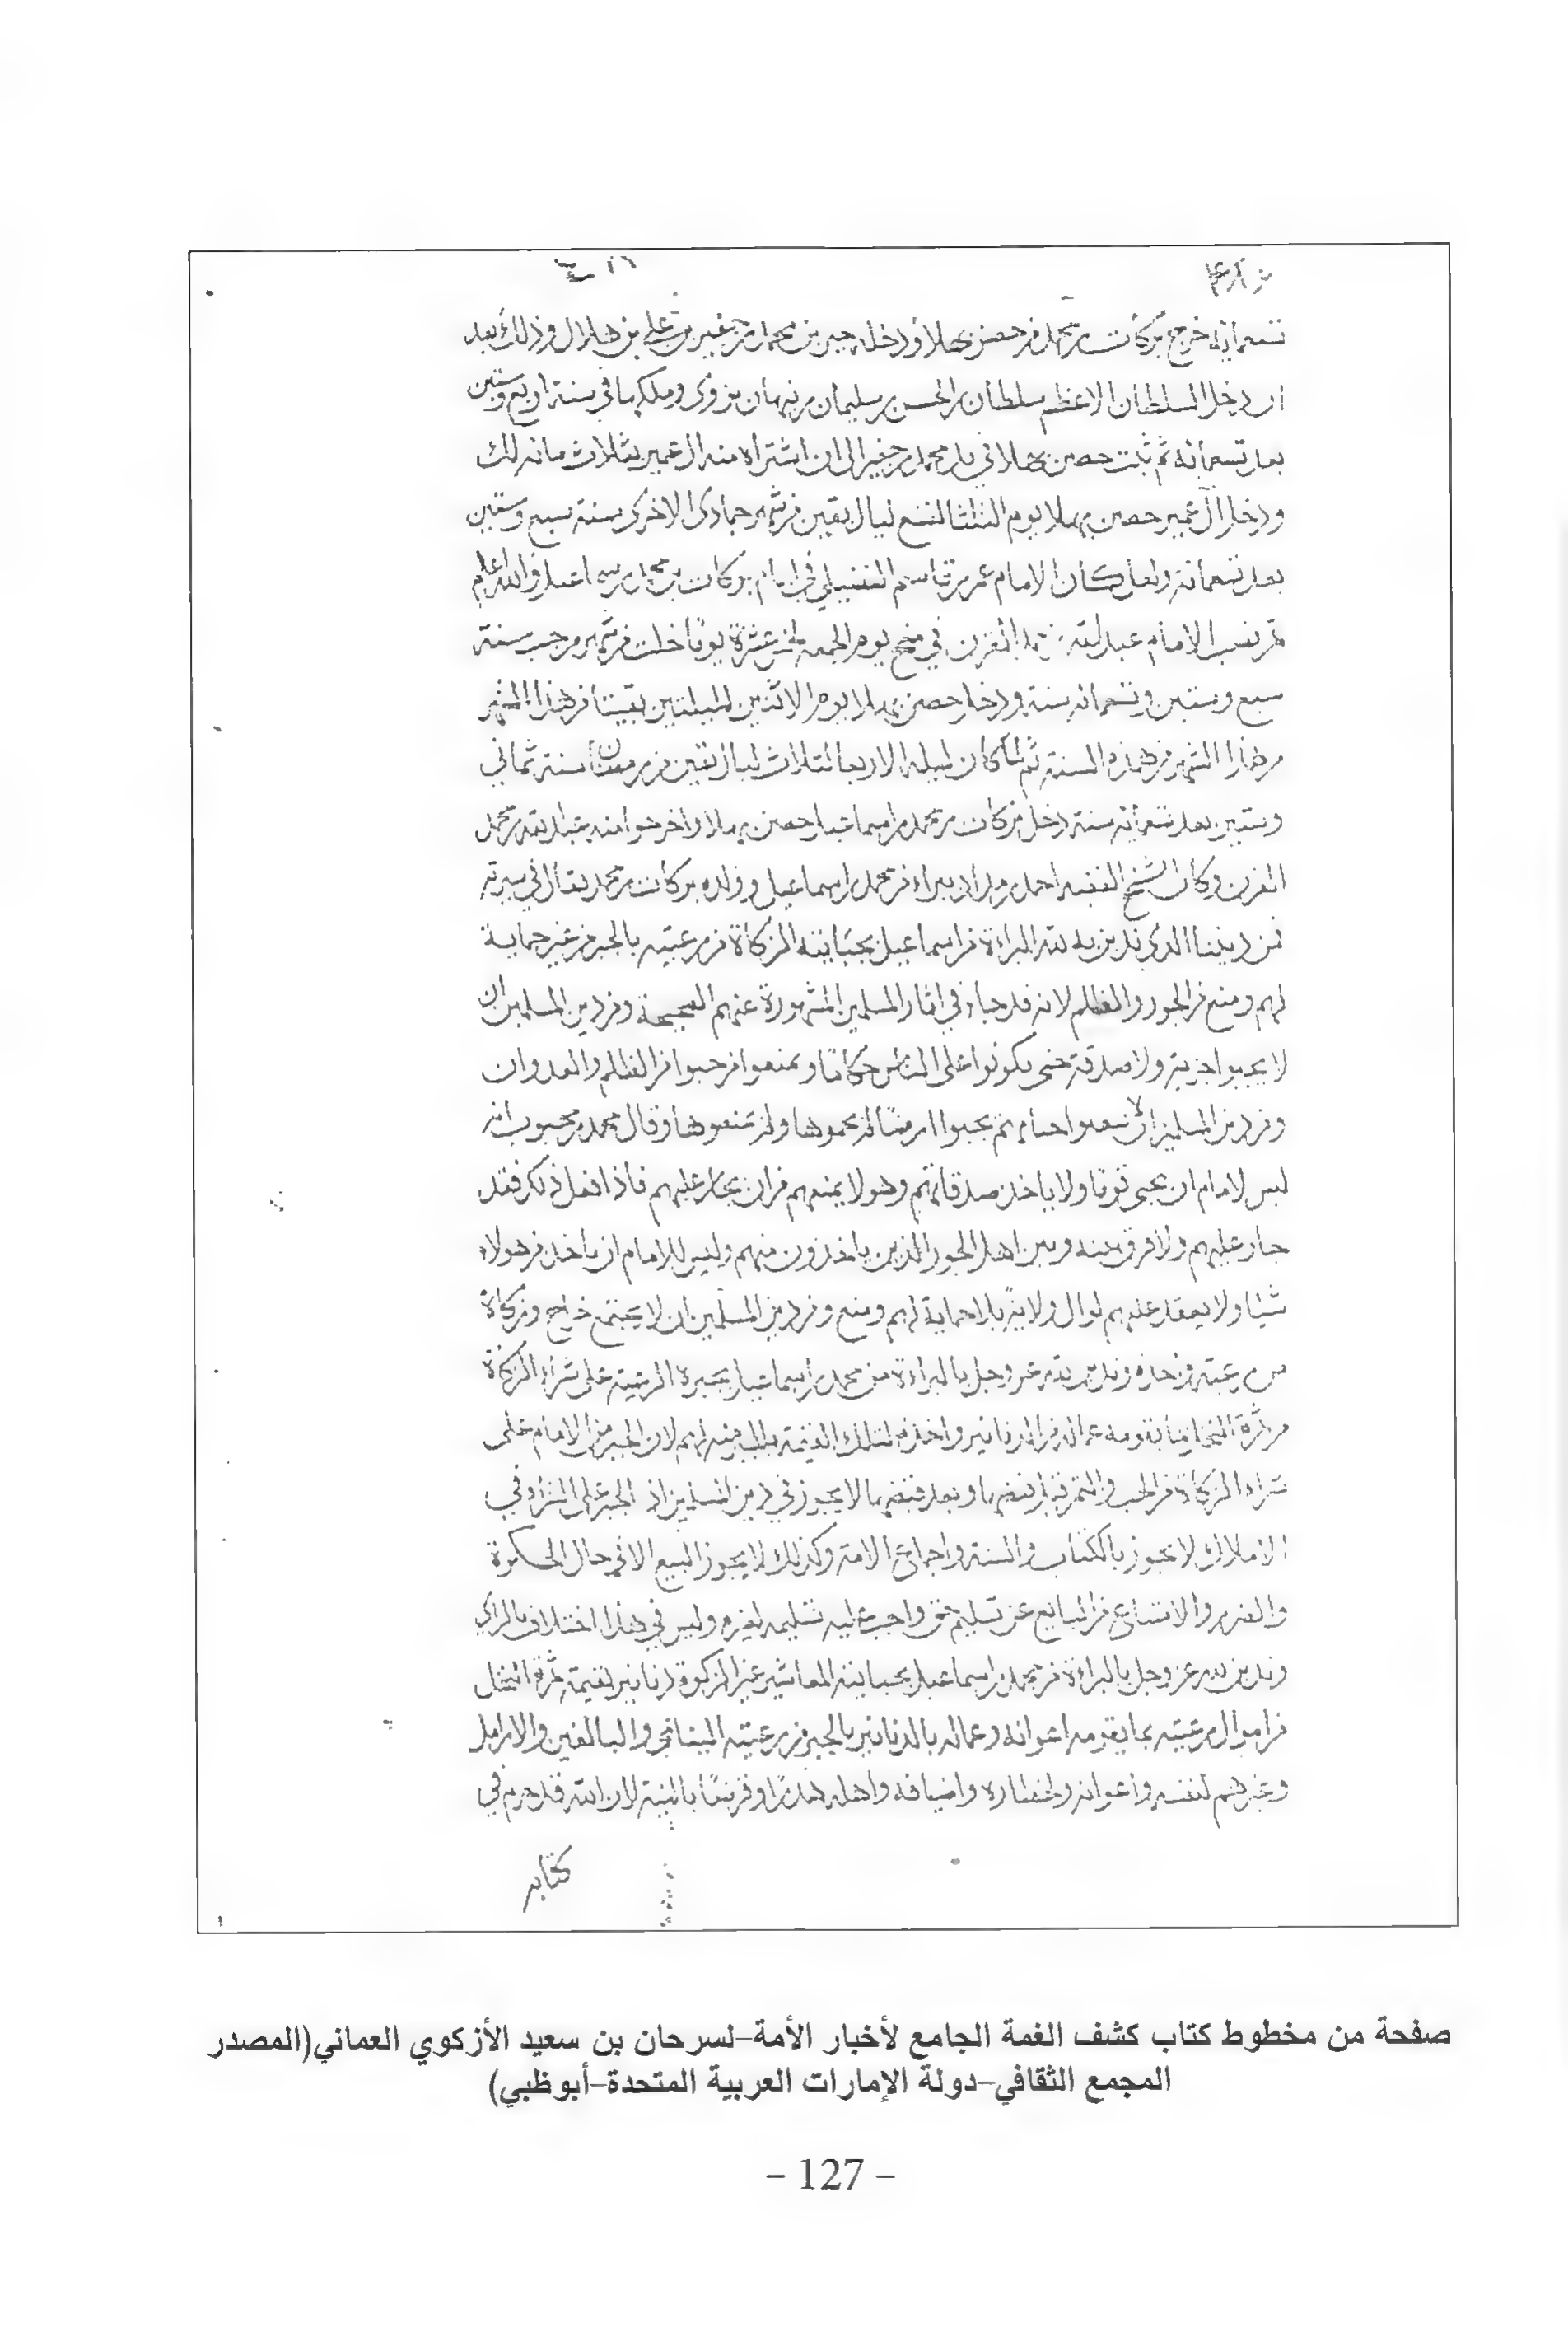 تسعمائة خرج بركات بن محمد من حصن بهلا ودخله جبر بن محمد بن جفير بن علي بن هلال وذلك بعد
ان دخل السلطان الاعظم سلطان بن المحسن بن سليمان بن نبهان نزوى وملكها في سنة اربع وستين
بعد تسعمائة ثم ثبت حصن بهلا في يد محمد بن جفير الى ان اشتراه منه ال عمير بثلاث مائة لك
ودخل آل عمير حصن بهلا يوم الثلثا لتسع ليال بقين من شهر جمادى الاخرى سنة سبع وستين
بعد تسعمائة ولعل كان الامام عمر بن قاسم الفضيلي في ايام بركات بن محمد بن اسماعيل والله اعلم
ثم نصب الامام عبدالله بن محمد القرن في منح يوم الجمعة لخمس عشرة يوما خلت من شهر رجب سنة
سبع وستين وتسعمائة سنة ودخل حصن بهلا يوم الاثنين لليلتين بقيتا من هذا الشهر
من هذا الشهر من هذه السنة ثم لما كان ليلة الاربعا لثلاث ليال بقين من رمضان سنة ثماني
وستين بعد تسعمائة سنة دخل بركات بن محمد بن اسماعيل حصن بهلا واخرجوا منه عبدالله بن محمد
القرن وكان الشيخ الفقيه احمد بن مداد يبراء من محمد بن اسماعيل وولده بركات بن محمد يقال في سيرته
فمن ديننا الذي ندين به لله البراءة من اسماعيل بجبايته الزكاة من رعيته بالجبر من غير حماية
لهم ومنع من الجور والظلم لانه قد جاء في اثار المسلمين المشهورة عنهم الصحيحة ومن دين المسلمين ان
لا يجبوا جزية ولا صدقة حتى يكونوا على الناس حكاما ويمنعوا من جبوا من الظلم والعدوان
ومن دين المسلمين ان لا يجبوا ارضا لم يحموها ولم يمنعوها وقال محمد بن محبوب انه
ليس لامام ان يجبي قوما ولا ياخذ صدقاتهم وهو لا يمنعهم من ان يجار عليهم فاذا فعل ذلك فقد
جار عليهم ولا فرق بينه وبين اهل الجور الذين ياخذون منهم وليس للامام ان ياخذ من هولاء
شيا ولا يعقد عليهم لوال ولاية بلا حماية لهم ومنع ومن دين المسلمين ان لا يجتمع خراج وزكاة
من رعية واحدة وندين لله عز وجل بالبراءة من محمد بن اسماعيل بجبره الرعية على شراء الزكاة
من ثمرة النخل بما يقومه عماله من الدنانير واخذه لتلك القيمة بالجبر منه لهم لان الجبر من الامام على
شراء الزكاة من الحب والتمر قبل قبضها وبعد قبضها لا يجوز في دين المسلمين اذ الجبر على الشراء في
الاملاك لا يجوز بالكتاب والسنة واجماع الامة وكذلك لا يجوز البيع الا في حال الحكرة
والضرر والامتناع من البايع عن تسليم حق واجب عليه تسليمه لغيره وليس في هذا اختلاف بالراي
وندين لله عز وجل بالبراءة من محمد بن اسماعيل بجبايته المعاشير غير الزكوة دنانير لقيمة ثمرة النخل
من اموال رعيته بما يقومه اعوانه وعماله بالدنانير بالجبر من رعيته اليتامى والبالغين والارامل
وغيرهم لنفسه واعوانه واضيافه واهله لان الله قد حرم في
كتابه
صفحة من مخطوط كتاب كشف الغمة الجامع لأخبار الأمة–لسرحان بن سعيد الأزكوي العماني(المصدر
المجمع الثقافي–دولة الإمارات العربية المتحدة–أبوظبي)
– 127 –